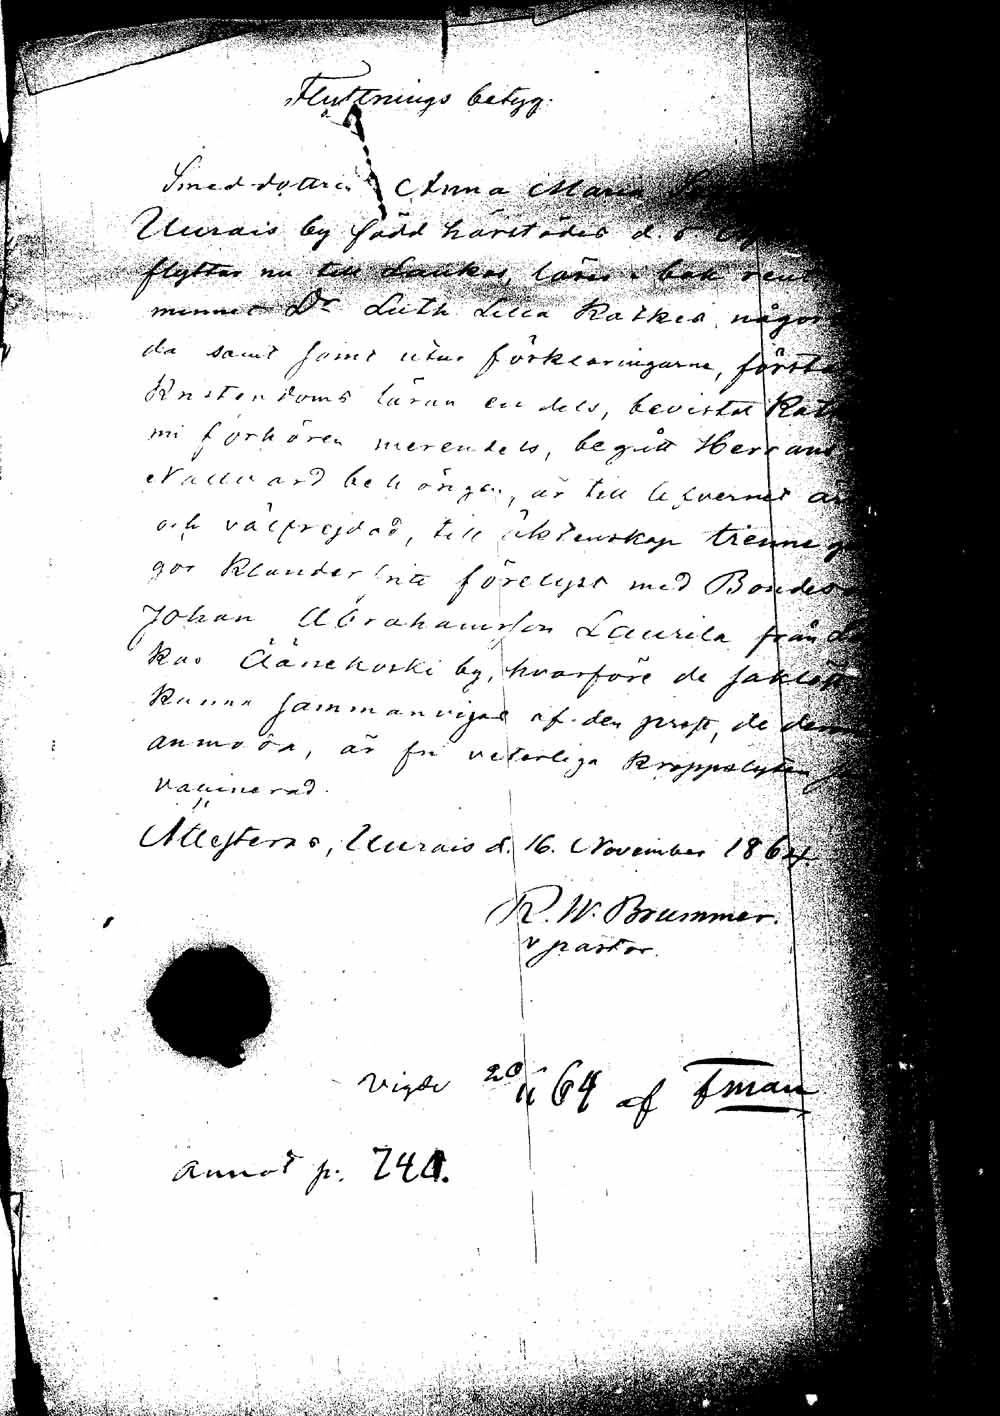 Flyttnings betyg.
Smed dottren Anna Maria
Uurais by född härstädes d. 5
flyttar nu till Laukas, läser i bok rent
minnet Dr Luth Lilla Katkes, någor
da samt somt utur förklaringarne, förstå
Kristendoms läran en dels, bevistat Kat
mi förhören merendels, begått Herrans
Nattvard behörigen, är till lefvernet är
och välfrejdad, till äktenskap trenne gå
gor klanderfritt förelyst med Bondes
Johan Abrahamsson Laurila från
kas Äänekoski by, hvarföre de sakl
kunna sammanvigas af den prest, de dem
anmoda, är fri veterliga kroppslyten
vaccinerad.
Attesteras, Uurais d. 16. November 1864.
R. W. Brummer.
v pastor.
Vigde 20/11 64 af Fman
Annot p. 740.